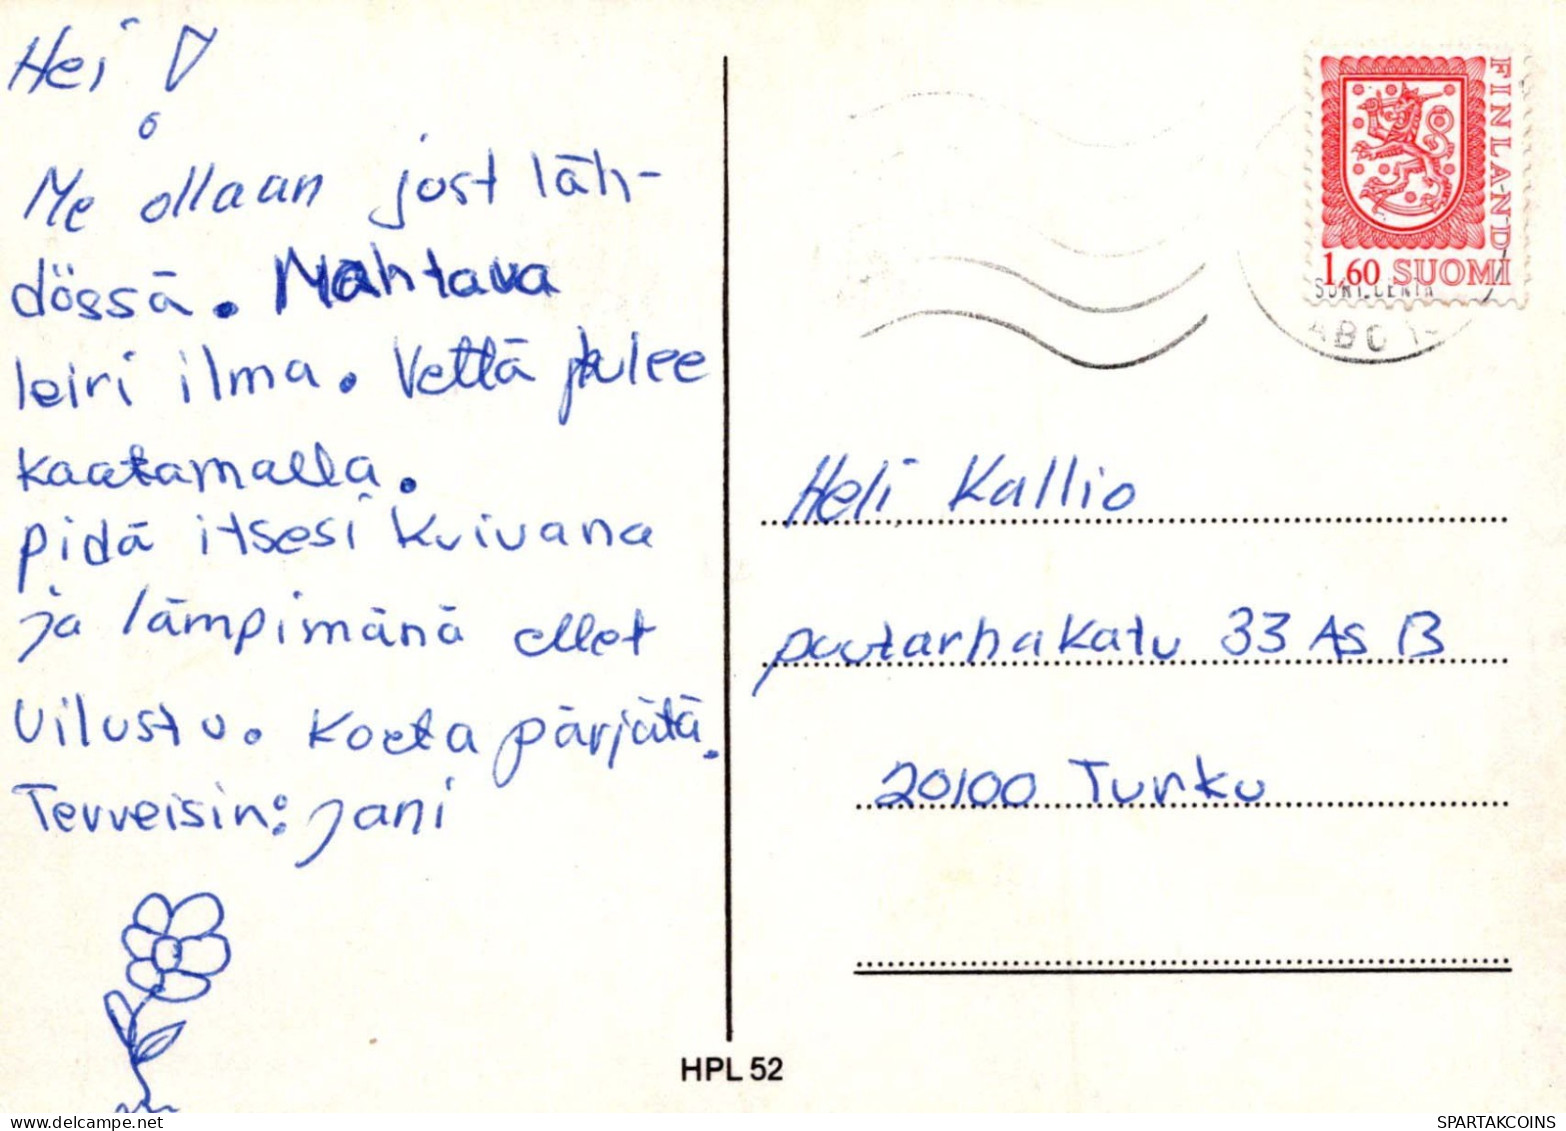 Hei!
Me ollaan just läh-
dössä. Mahtava
leiri ilma. Vettä tulee
kaatamalla.
pidä itsesi kuivana
ja lämpimänä ettet
vilustu. Koeta pärjätä.
Terveisin: Jani
FINLAND
1.60 SUOMI
Heli Kallio
puutarhakatu 33 As B
20100 Turku
HPL 52
SPARTAKCOINS